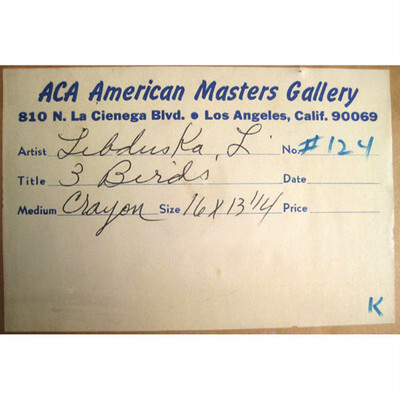 ACA American Masters Gallery
810 N. La Cienega Blvd. • Los Angeles, Calif. 90069
Artist Lebduska, L. No. #124
Title 3 Birds Date
Medium Crayon Size 16 x 13 1/4 Price
K